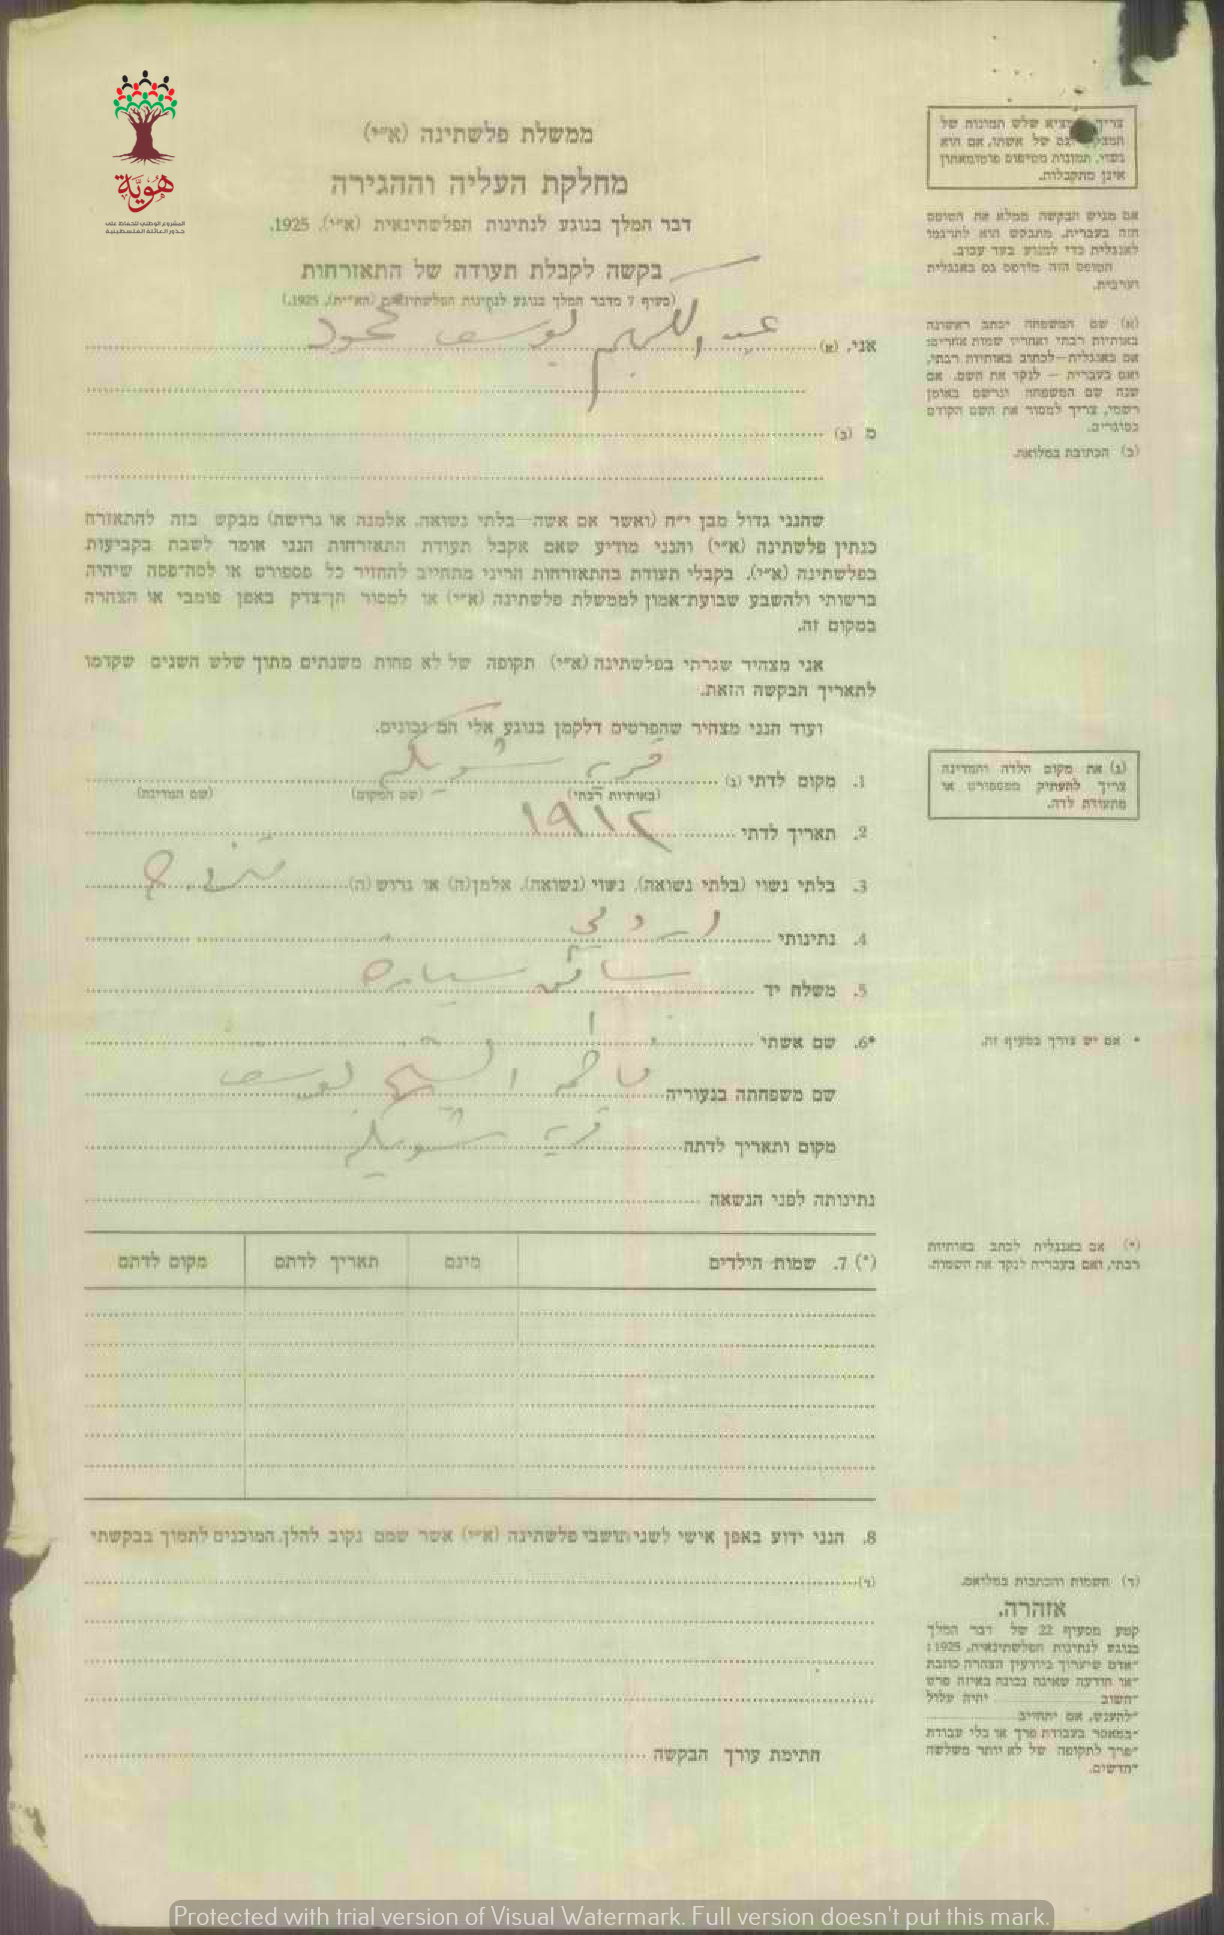 هوية
المشروع الوطني للحفاظ على
جذور العائلة الفلسطينية
ממשלת פלשתינה (א״י)
מחלקת העליה וההגירה
דבר המלך בנוגע לנתינות הפלשתינאית (א״י), 1925.
בקשה לקבלת תעודה של התאזרחות
(סעיף 7 מדבר המלך בנוגע לנתינות הפלשתינאית (הא״ית), 1925.)
אני, (א) عبد الكريم يوسف محمود
מ (ב)
שהנני גדול מבן י״ח (ואשר אם אשה—בלתי נשואה, אלמנה או גרושה) מבקש בזה להתאזרח
כנתין פלשתינה (א״י) והנני מודיע שאם אקבל תעודת התאזרחות הנני אומר לשבת בקביעות
בפלשתינה (א״י). בקבלי תעודת בהתאזרחות הריני מתחייב להחזיר כל פספורט או לסה־פסה שיהיה
ברשותי ולהשבע שבועת־אמון לממשלת פלשתינה (א״י) או למסור הן־צדק באפן פומבי או הצהרה
במקום זה.
אני מצהיר שגרתי בפלשתינה (א״י) תקופה של לא פחות משנתים מתוך שלש השנים שקדמו
לתאריך הבקשה הזאת.
ועוד הנני מצהיר שהפרטים דלקמן בנוגע אלי הם נכונים.
1. מקום לדתי (ג) قرية شويكه
(באותיות רבתי) (שם המקום) (שם המדינה)
2. תאריך לדתי ١٩١٢
3. בלתי נשוי (בלתי נשואה), נשוי (נשואה), אלמן(ה) או גרוש (ה)
4. נתינותי اردني
5. משלח יד سائق سياره
*6. שם אשתי
שם משפחתה בנעוריה فاطمه الشيخ يوسف
מקום ותאריך לדתה قرية شويكه
נתינותה לפני הנשאה
(*) 7. שמות הילדים מינם תאריך לדתם מקום לדתם
8. הנני ידוע באפן אישי לשני תושבי פלשתינה (א״י) אשר שמם נקוב להלן, המוכנים לתמוך בבקשתי
(ד)
חתימת עורך הבקשה
צריך שלש תמונות של
של אשתו, אם הוא
נשוי. תמונות מטיפוס פוטומאתון
אינן מתקבלות.
אם מגיש הבקשה ממלא את הטופס
הזה בעברית, מתבקש הוא לתרגמו
לאנגלית כדי למנוע בעד עכוב.
הטופס הזה מודפס גם באנגלית
וערבית.
(א) שם המשפחה יכתב ראשונה
באותיות רבתי ואחריו שמות אחרים;
אם באנגלית—לכתוב באותיות רבתי,
ואם בעברית — לנקד את השם. אם
שנה שם המשפחה ונרשם באופן
רשמי, צריך למסור את השם הקודם
בסוגרים.
(ב) הכתובת במלואה.
(ג) את מקום הלדה והמדינה
צריך להעתיק מפספורט או
מתעודת לדה.
* אם יש צורך בסעיף זה.
(*) אם באנגלית לכתב באותיות
רבתי, ואם בעברית לנקד את השמות.
(ד) השמות והכתבות במלואם.
אזהרה.
קטע מסעיף 22 של דבר המלך
בנוגע לנתינות הפלשתינאית, 1925:
״אדם שיערוך ביודעין הצהרה כוזבת
״או הודעה שאינה נכונה באיזה פרט
״חשוב יהיה עלול
״להענש, אם יתחייב
״במאסר בעבודת פרך או בלי עבודת
״פרך לתקופה של לא יותר משלשה
״חדשים.
Protected with trial version of Visual Watermark. Full version doesn't put this mark.